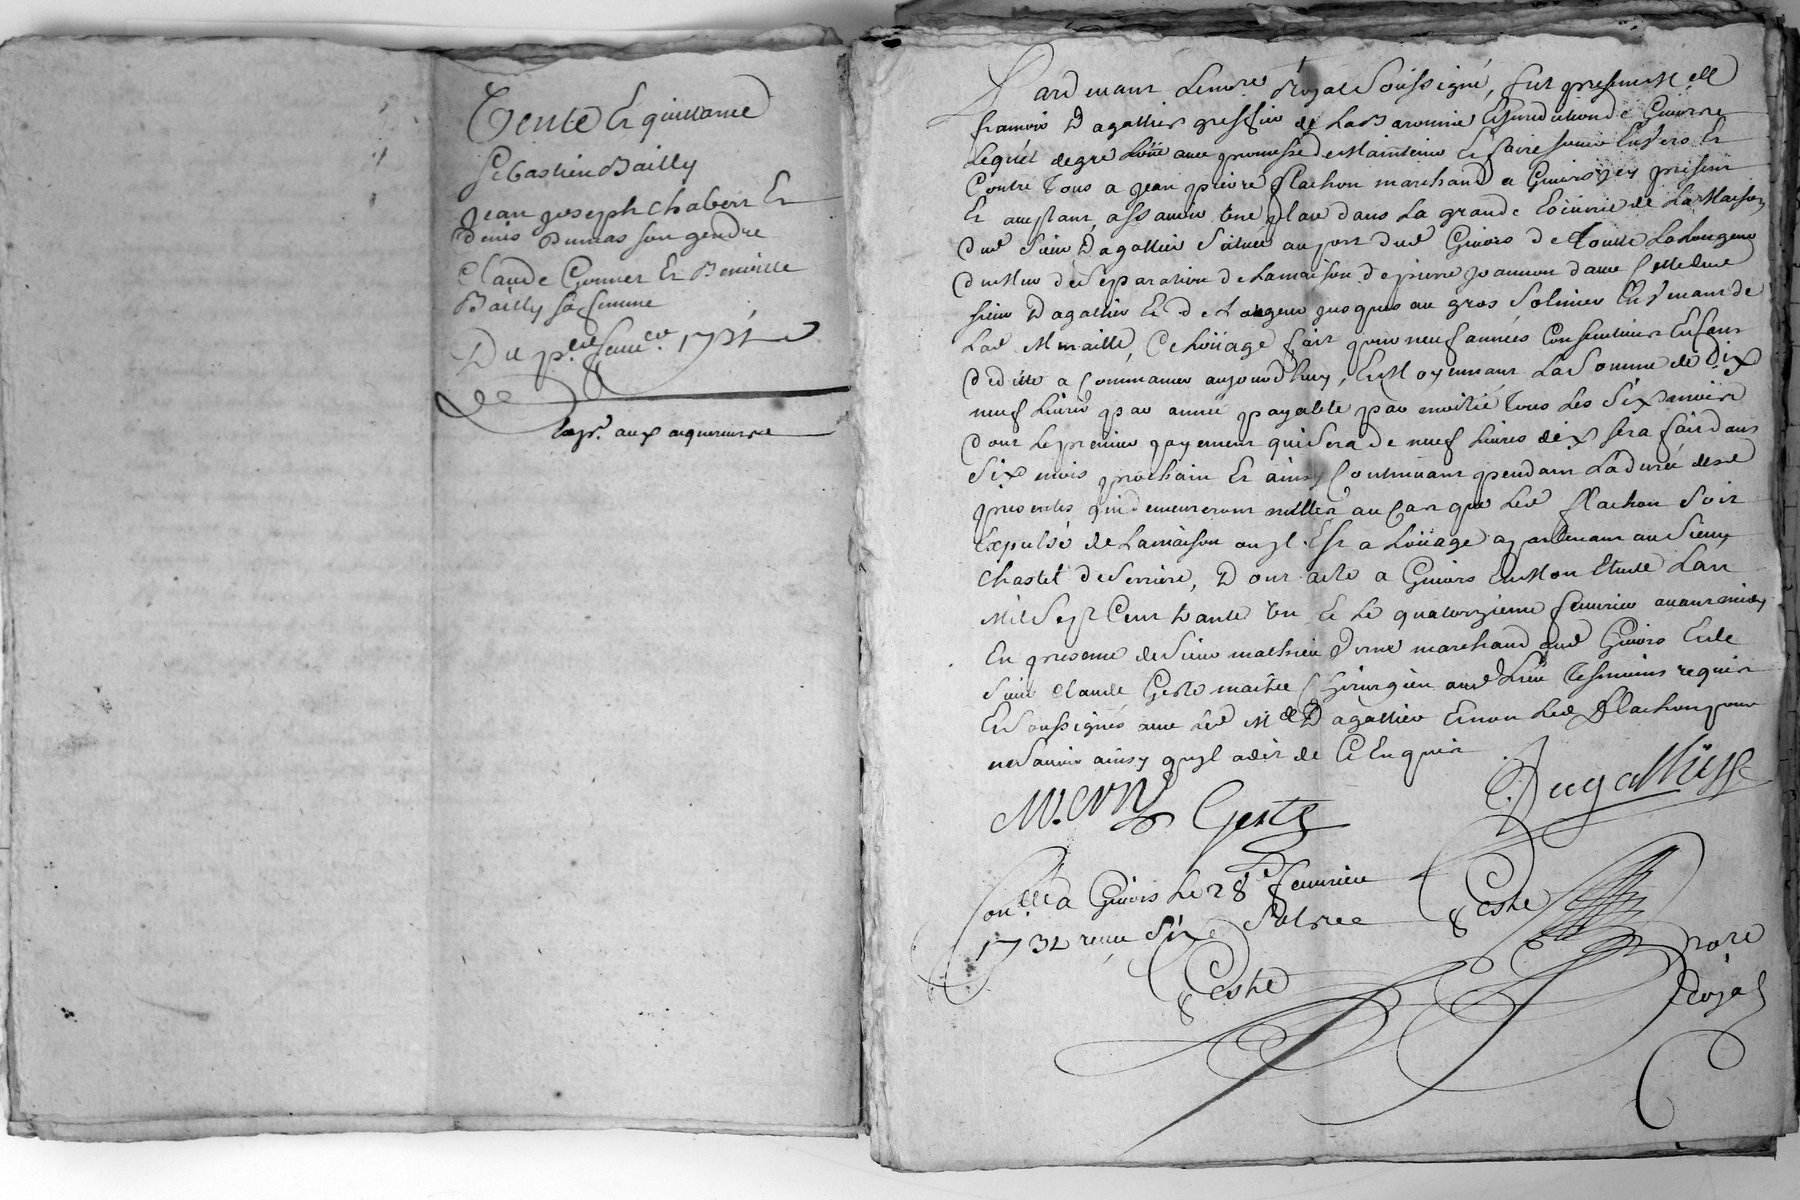 Vente Et quittance
Sebastien Bailly
Jean joseph chabert Et
denis Dumas son gendre
Claude Et Benoitte
Bailly sa femme
Du p.er 1731
aux aquereurs
Pardevant Lenore Royal Soussigné, fut present M.e
francois Dagallier greffier de La Baronnie Et Juridiction de Givors
Lequel de gré avec promesse de Maintenir Et faire Envers Et
Contre Tous a jean pierre flachon marchand a Givors jcy present
Et acceptant, assavoir Une place dans La grande de La Maison
dud sieur Dagallier Scituée au port dud Givors de Toutte La Longeur
du Mur de Separation de Lamaison de pierre d'avec Celle dud
sieur Dagallier Et de Largeur jusques au gros Solivier de
Lad Muraille, Ce Loüage fait pour neuf années Consecutives
a Commancer aujourdhuy, Et Moyennant La Somme de Dix
neuf Livres par année payable par moitié Tous Les Six mois
dont Le premier payement qui Sera de neuf Livres dix sera fait dans
Six mois prochain Et ainsy Continuant pendant La durée des
presentes qui demeureront nulles au Cas que Led flachon Soit
Expulsé de Lamaison Est a Loüage apartenant au Sieur
Chastel de Serriere, Dont acte a Givors En Mon Etude Lan
Mil Sept Cent trante Un Et Le quatorzieme fevrier avant midy
En presence de Sieur mathieu marchand aud Givors Et de
Sieur Claude Geste maitre Chirurgien aud Lieu Tesmoins requis
Et Soussignés avec Led M.e Dagallier Et non Led Flachon pour
ne Savoir ainsy quyl a dit de Ce Enquis
Geste Dagallier
Con.llé a Givors Le 28.e fevrier
1731 receu Six
Geste nore
Geste Royal